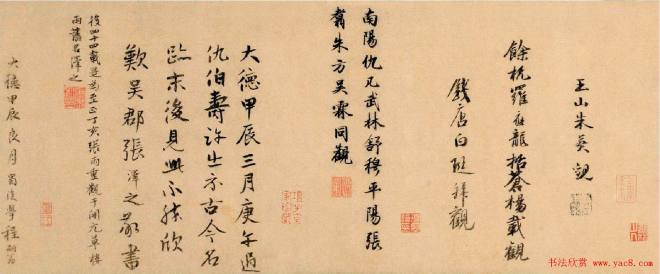 玉山朱英觀
餘杭羅在龍栝蒼楊載觀
錢唐白珽拜觀
南陽仇几武林舒穆平陽張
翥朱方吳霖同觀
大德甲辰三月庚午過
仇伯壽許出示古今名
跡末後見此不勝欣
歎吳郡張澤之敬書
後四十四載是為至正丁亥張雨重觀于開元草樓
雨舊名澤之
大德甲辰良月蜀後學程
书法欣赏
www.yac8.com